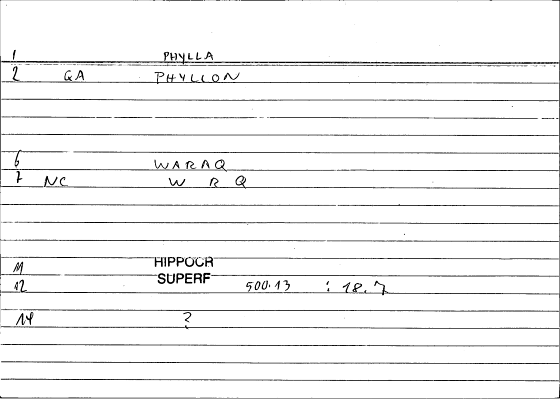 1 PHYLLA
2 GA PHYLLON
6 WARAQ
7 NC W R Q
11 HIPPOCR
12 SUPERF 500.13 : 18.7
14 ?